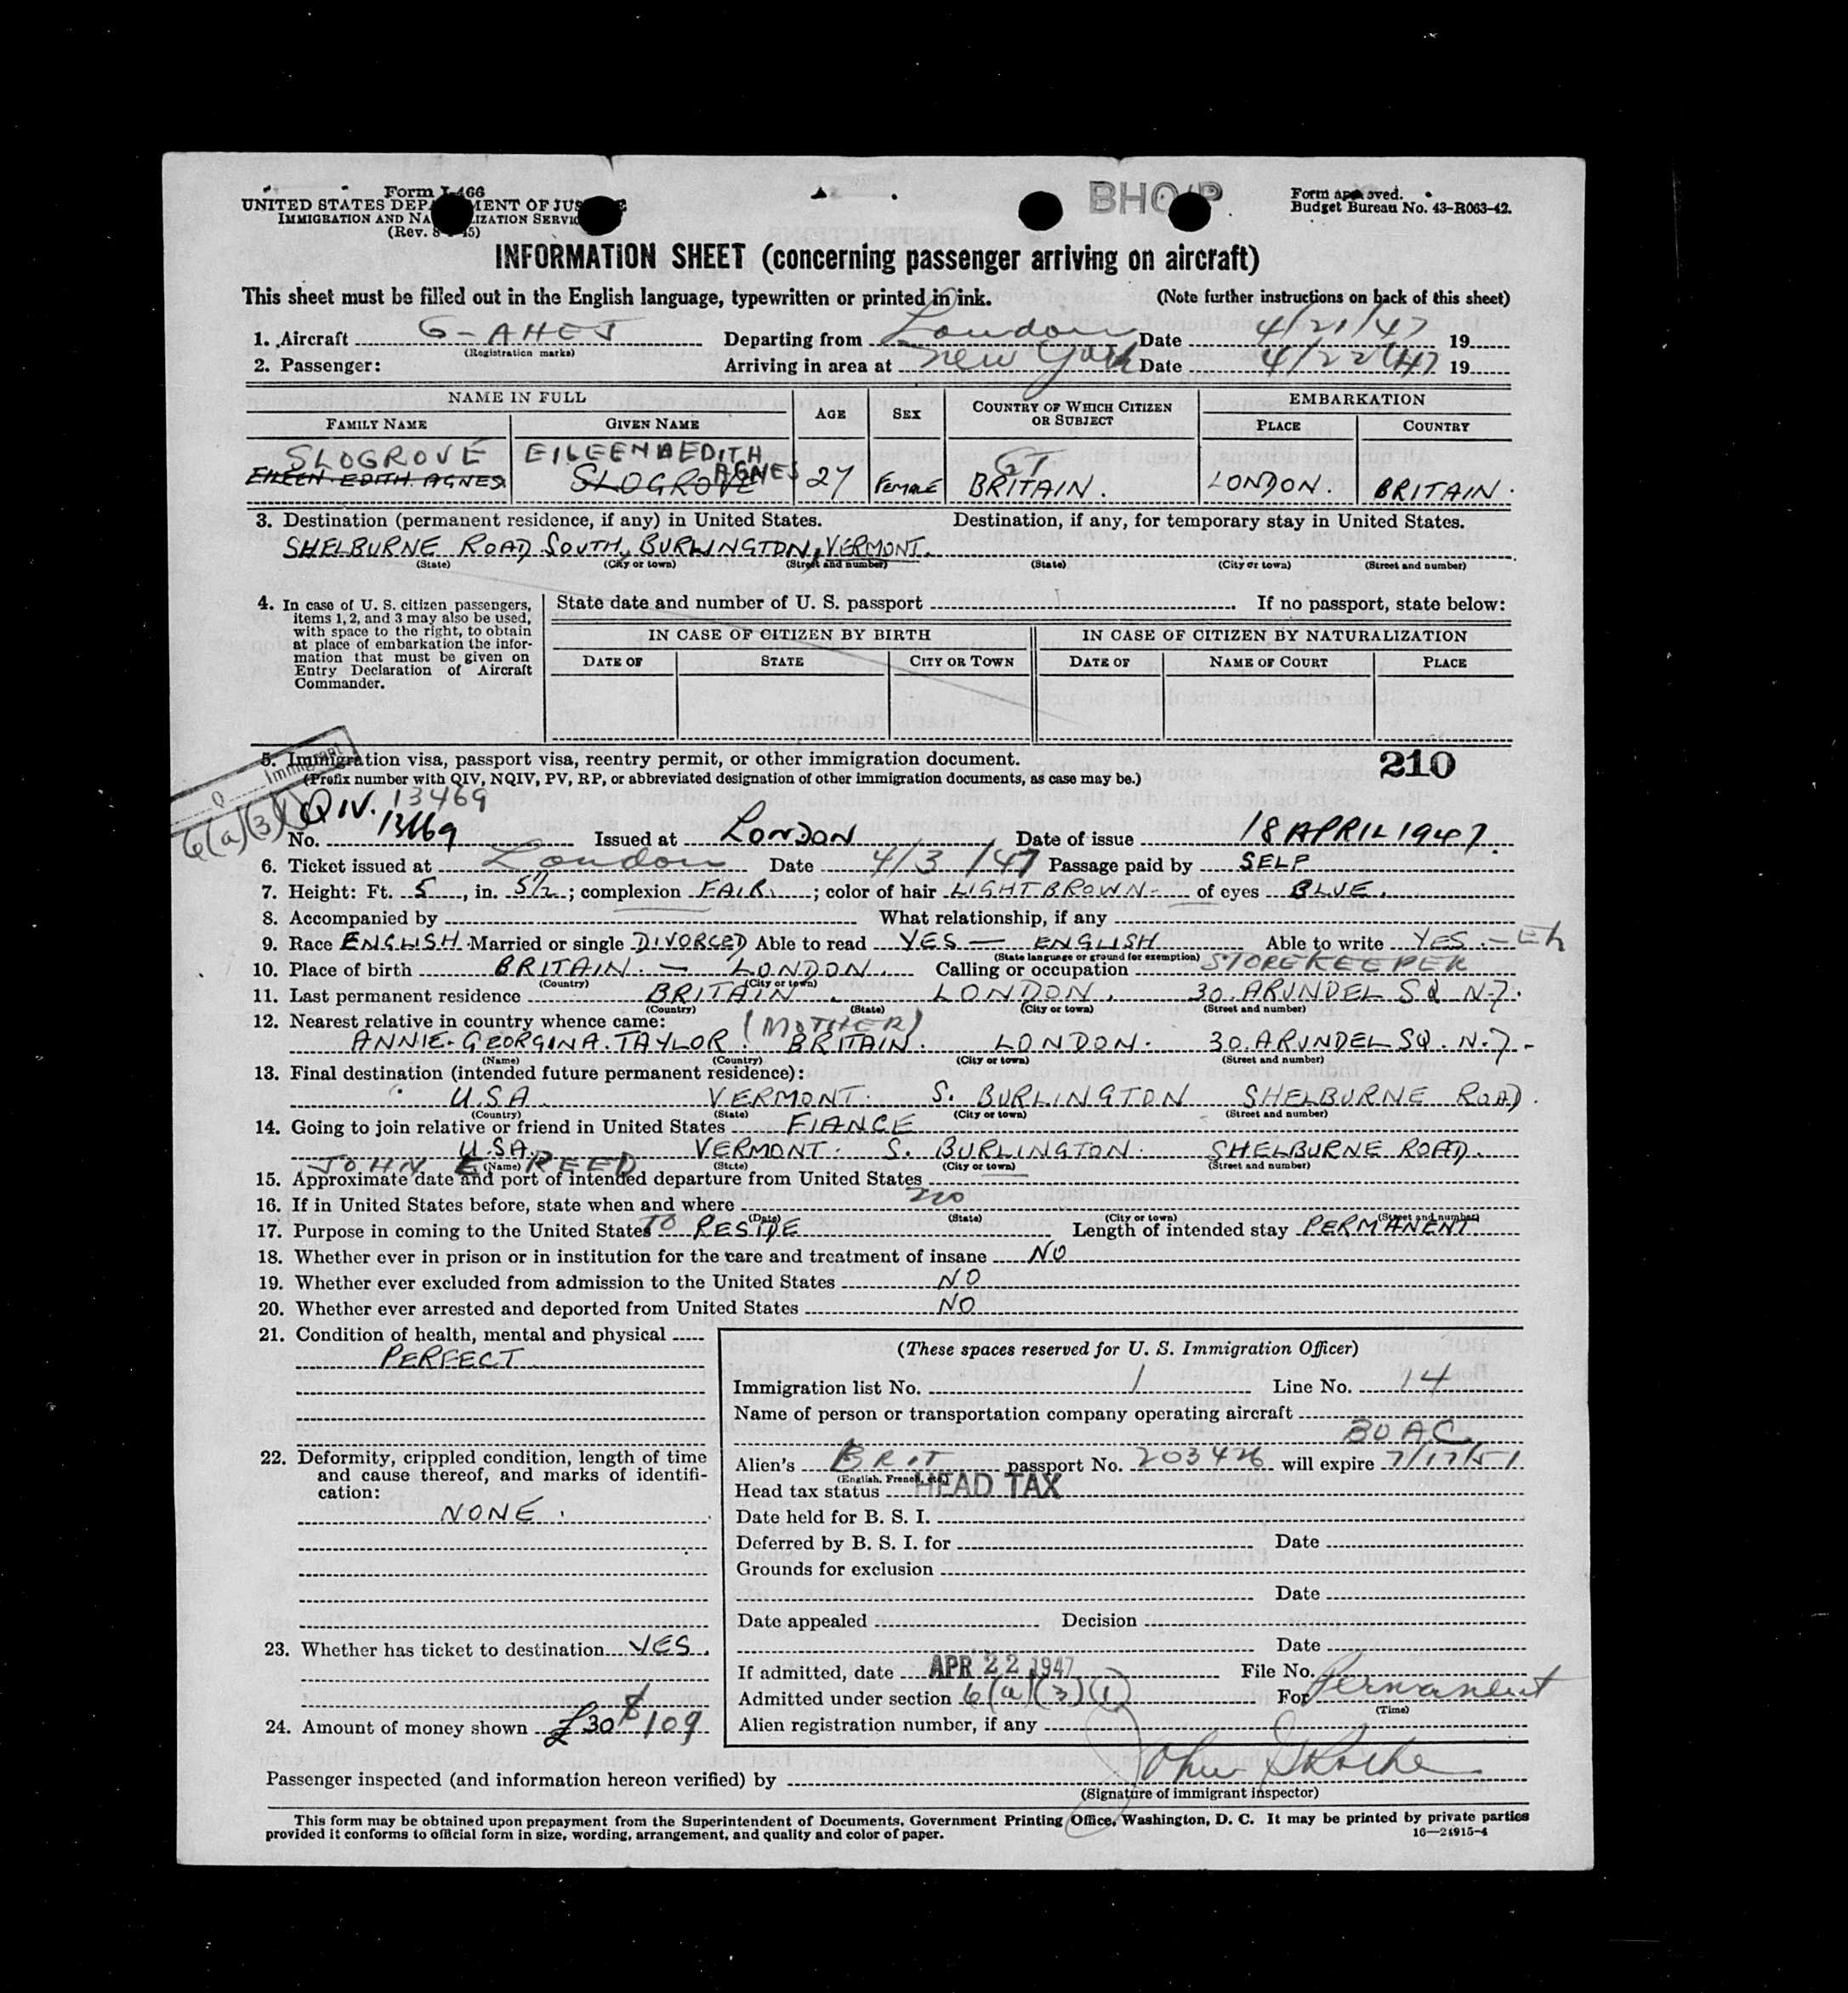 Form I-466
UNITED STATES DEPARTMENT OF JUSTICE
IMMIGRATION AND NATURALIZATION SERVICE
(Rev. 8 45)
Form approved.
Budget Bureau No. 43-R063-42.
INFORMATION SHEET (concerning passenger arriving on aircraft)
This sheet must be filled out in the English language, typewritten or printed in ink. (Note further instructions on back of this sheet)
1. Aircraft G-AHEJ Departing from London Date 4/21/47 19
(Registration marks)
2. Passenger: Arriving in area at New York Date 4/22/47 19
NAME IN FULL AGE SEX COUNTRY OF WHICH CITIZEN OR SUBJECT EMBARKATION
FAMILY NAME GIVEN NAME PLACE COUNTRY
SLOGROVE EILEEN EDITH GT
EILEEN EDITH AGNES SLOGROVE AGNES 27 FEMALE BRITAIN. LONDON. BRITAIN.
3. Destination (permanent residence, if any) in United States. Destination, if any, for temporary stay in United States.
SHELBURNE ROAD SOUTH, BURLINGTON, VERMONT.
(State) (City or town) (Street and number) (State) (City or town) (Street and number)
4. In case of U. S. citizen passengers, items 1, 2, and 3 may also be used, with space to the right, to obtain at place of embarkation the information that must be given on Entry Declaration of Aircraft Commander.
State date and number of U. S. passport If no passport, state below:
IN CASE OF CITIZEN BY BIRTH IN CASE OF CITIZEN BY NATURALIZATION
DATE OF STATE CITY OR TOWN DATE OF NAME OF COURT PLACE
5. Immigration visa, passport visa, reentry permit, or other immigration document. 210
(Prefix number with QIV, NQIV, PV, RP, or abbreviated designation of other immigration documents, as case may be.)
Immigrant
6(a)(3)(1)
QIV. 13469
No. 13469 Issued at LONDON Date of issue 18 APRIL 1947.
6. Ticket issued at London Date 4/3/47 Passage paid by SELF
7. Height: Ft. 5, in. 5½; complexion FAIR; color of hair LIGHT BROWN of eyes BLUE.
8. Accompanied by What relationship, if any
9. Race ENGLISH Married or single DIVORCED Able to read YES — ENGLISH Able to write YES. — Eh
(State language or ground for exemption)
10. Place of birth BRITAIN. — LONDON. Calling or occupation STOREKEEPER
(Country) (City or town)
11. Last permanent residence BRITAIN. LONDON. 30. ARUNDEL SQ N.7.
(Country) (State) (City or town) (Street and number)
12. Nearest relative in country whence came: (MOTHER)
ANNIE. GEORGINA. TAYLOR. BRITAIN. LONDON. 30. ARUNDEL SQ. N.7.
(Name) (Country) (City or town) (Street and number)
13. Final destination (intended future permanent residence):
U.S.A. VERMONT. S. BURLINGTON SHELBURNE ROAD.
(Country) (State) (City or town) (Street and number)
14. Going to join relative or friend in United States FIANCE
U.S.A. VERMONT. S. BURLINGTON. SHELBURNE ROAD.
JOHN E REED (Name) (State) (City or town) (Street and number)
15. Approximate date and port of intended departure from United States
16. If in United States before, state when and where no
(Date) (State) (City or town) (Street and number)
17. Purpose in coming to the United States TO RESIDE Length of intended stay PERMANENT.
18. Whether ever in prison or in institution for the care and treatment of insane NO
19. Whether ever excluded from admission to the United States NO
20. Whether ever arrested and deported from United States NO
21. Condition of health, mental and physical
PERFECT
22. Deformity, crippled condition, length of time and cause thereof, and marks of identification:
NONE.
23. Whether has ticket to destination YES.
24. Amount of money shown £30 $109
(These spaces reserved for U. S. Immigration Officer)
Immigration list No. 1 Line No. 14
Name of person or transportation company operating aircraft
BOAC
Alien's BRIT passport No. 203426 will expire 7/17/51
(English, French, etc.)
Head tax status HEAD TAX
Date held for B. S. I.
Deferred by B. S. I. for Date
Grounds for exclusion
Date
Date appealed Decision
Date
If admitted, date APR 22 1947 File No.
Admitted under section 6(a)(3)(1) For Permanent
(Time)
Alien registration number, if any
Passenger inspected (and information hereon verified) by
(Signature of immigrant inspector)
This form may be obtained upon prepayment from the Superintendent of Documents, Government Printing Office, Washington, D. C. It may be printed by private parties
provided it conforms to official form in size, wording, arrangement, and quality and color of paper. 16—24915-4